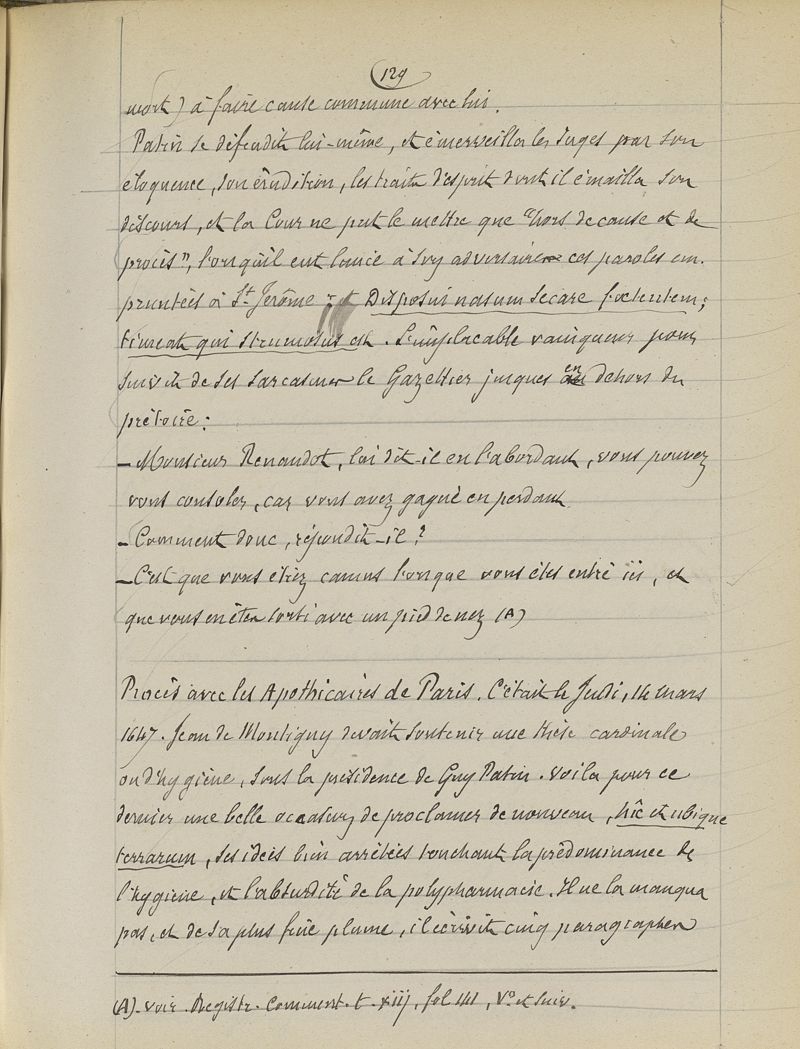 129
mort) à faire cause commune avec lui.
Patin se défendit lui-même, et émerveilla les Juges par son
éloquence, son érudition, les traits d'esprit dont il émailla son
discours, et la Cour ne put le mettre que "hors de cause et de
procès", lorsqu'il eut lancé à son adversaire ces paroles em-
pruntées à St. Jérôme : Disposui nasum secare foetentem;
timeat qui strumosus est. L'implacable vainqueur pour
suivit de ses sarcasmes le Gazettier jusques en dehors du
prétoire:
– Monsieur Renaudot, lui dit-il en l'abordant, vous pouvez
vous consoler, car vous avez gagné en perdant
– Comment donc, répondit-il?
– C'est que vous étiez camus lorsque vous êtes entré ici, et
que vous en êtes sorti avec un pied de nez (A)
Procès avec les Apothicaires de Paris. C'était le Jeudi, 14 mars
1647. Jean de Montigny devait soutenir une thèse cardinale
ou d'hygiène, sous la présidence de Guy Patin. Voila pour ce
dernier une belle occasion de proclamer de nouveau, hîc et ubique
terrarum, ses idées bien arrêtées touchant la prédominance de
l'hygiène, et l'absurdité de la polypharmacie. Il ne la manqua
pas, et de sa plus fine plume, il écrivit cinq paragraphes
(A). Voir. Registr. Comment. t. xiij, fol 41, Vo. et suiv.